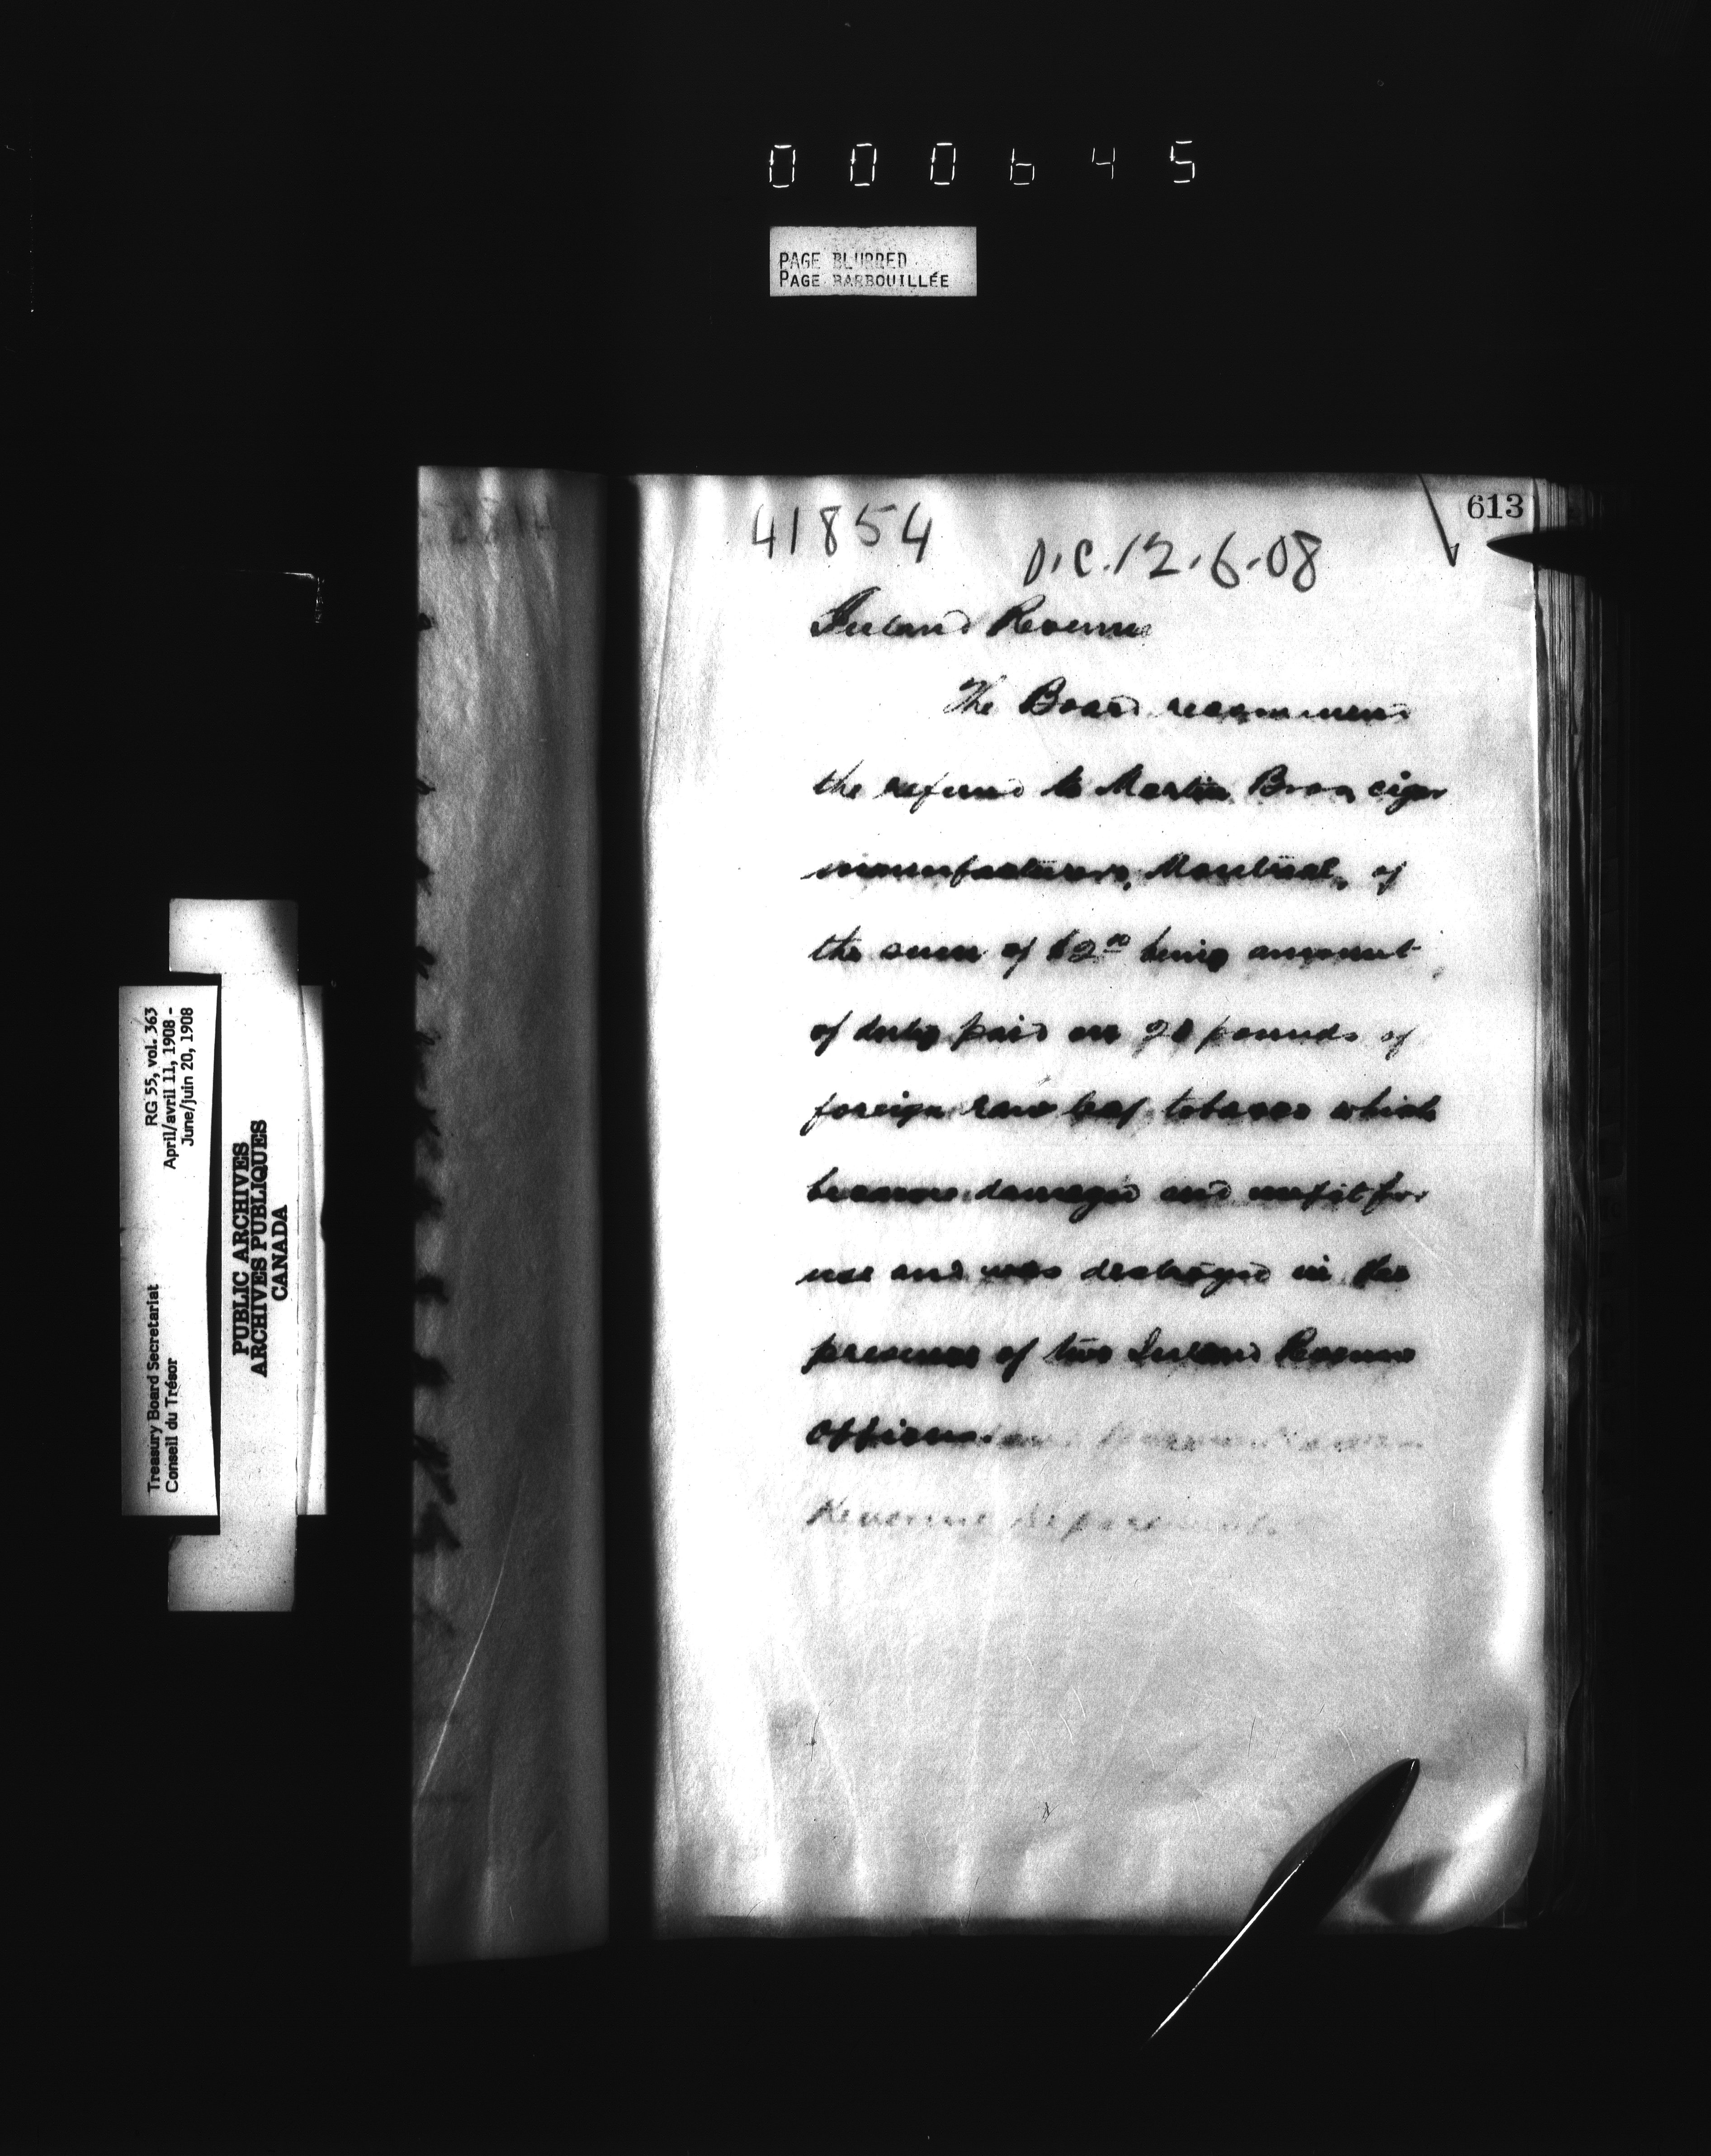 000645
PAGE BLURRED
PAGE BARBOUILLÉE
613
41854
O.C. 12.6.08
Inland Revenue
The Board recommend
the refund to Martin Bros, cigar
manufacturers, Montreal, of
the sum of $2.00 being amount
of duty paid on 20 pounds of
foreign raw leaf tobacco which
became damaged and unfit for
use and was destroyed in the
presence of two Inland Revenue
Officers
Revenue Department.
RG 55, vol. 363
April/avril 11, 1908 -
June/juin 20, 1908
Treasury Board Secretariat
Conseil du Trésor
PUBLIC ARCHIVES
ARCHIVES PUBLIQUES
CANADA